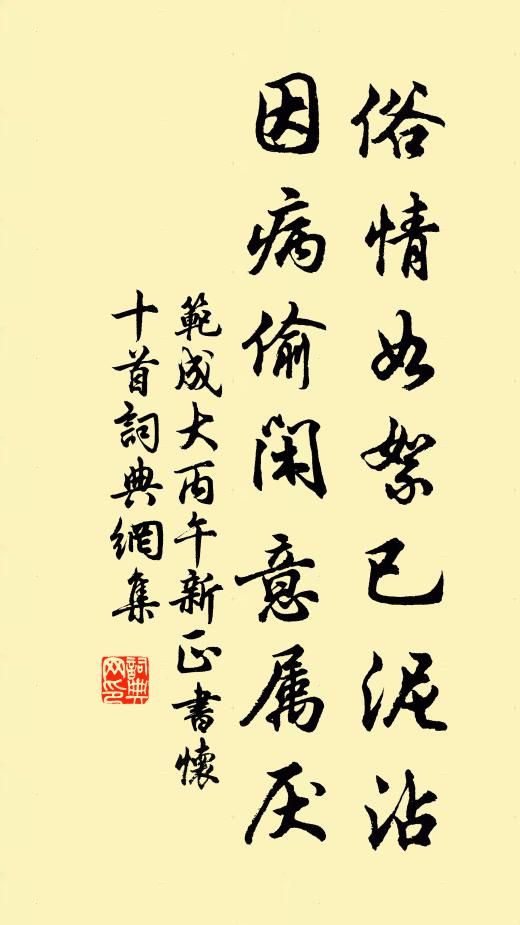 俗情如絮已泥沾
因病偷闲意属厌
範成大丙午新正書懷
十首詞典網集
詞典网印